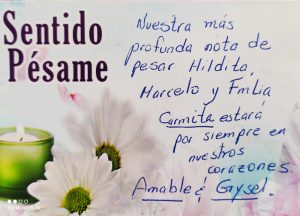 Sentido
Pésame
Nuestra más
profunda nota de
pesar Hildita,
Marcelo y Fmilia
Carmita estará
por siempre en
nuestros
corazones.
Amable & Gysel.